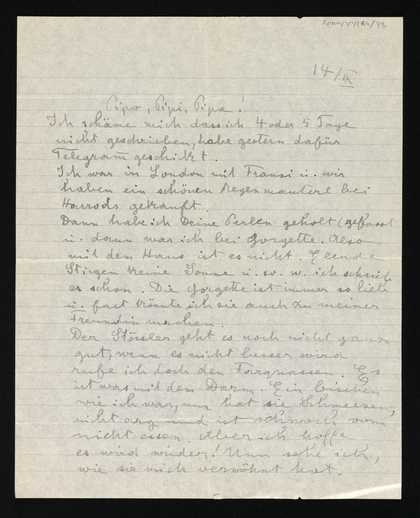 14/IX
Pipo, Pipi, Pipa!
Ich schäme mich dass ich 4 oder 5 Tage
nicht geschrieben, habe gestern dafür
Telegram geschickt.
Ich war in London mit Franzi u. wir
haben ein schönen Regenmanterl bei
Harrods gekauft.
Dann habe ich Deine Perlen geholt (gefasst
u. dann war ich bei Gorgette. Also
mit dem Haus ist es nicht. Elende
Stiegen keine Sonne u. s. w. ich schrieb
es schon. Die Gorgette ist immer so lieb
u. fast könnte ich sie auch zu meiner
Freundin machen.
Der Stössler geht es noch nicht ganz
gut, wenn es nicht besser wird
rufe ich doch den
ist was mit den Darm. Ein bischen
wie ich war, nur hat sie Schmerzen,
nicht arg und ist schwach vom
nicht essen. Aber ich hoffe
es wird wieder! Nun sehe ich,
wie sie mich verwöhnt hat.